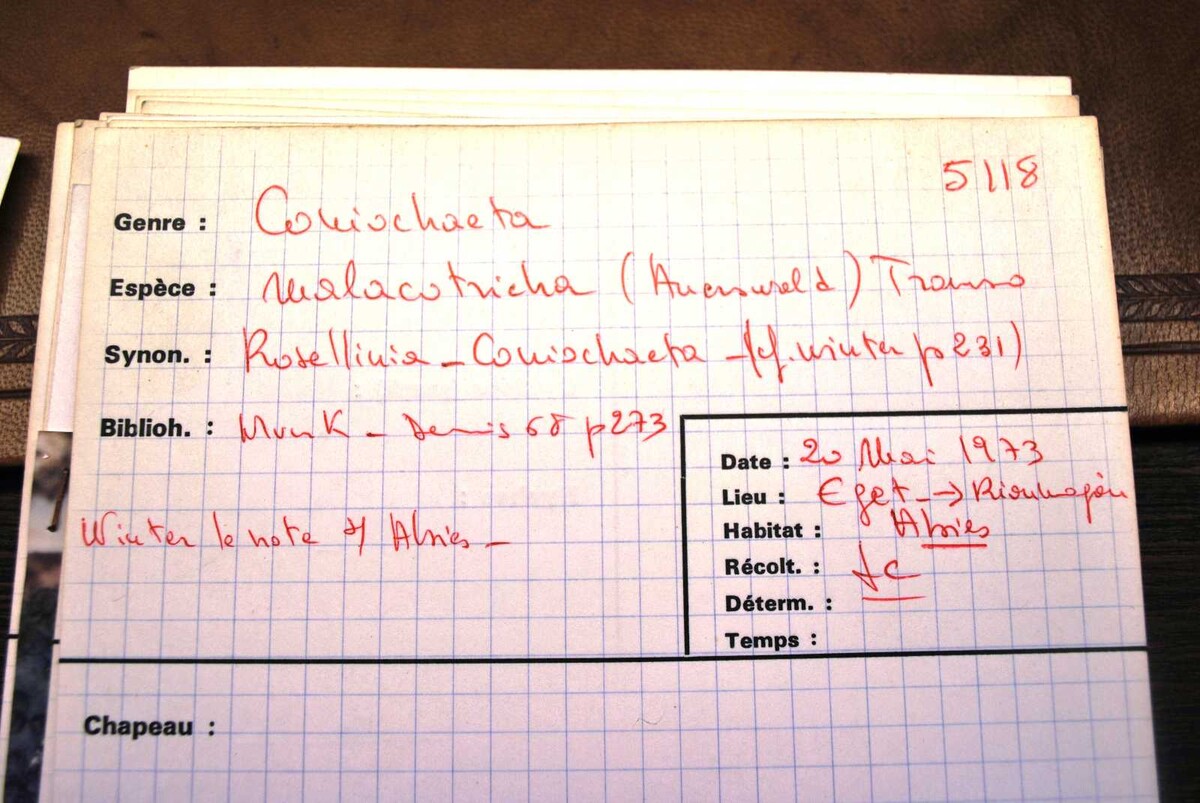 5118
Genre : Coniochaeta
Espèce : malacotricha (Auerswald) Travso
Synon. : Rosellinia - Coniochaeta - (cf. winter p 231)
Biblioh. : Munk - Dennis 68 p 273
Date : 20 Mai 1973
Lieu : Eget → Rioumajou
Habitat : Abies
Récolt. : fc
Déterm. :
Temps :
Winter le note s/ Abies -
Chapeau :